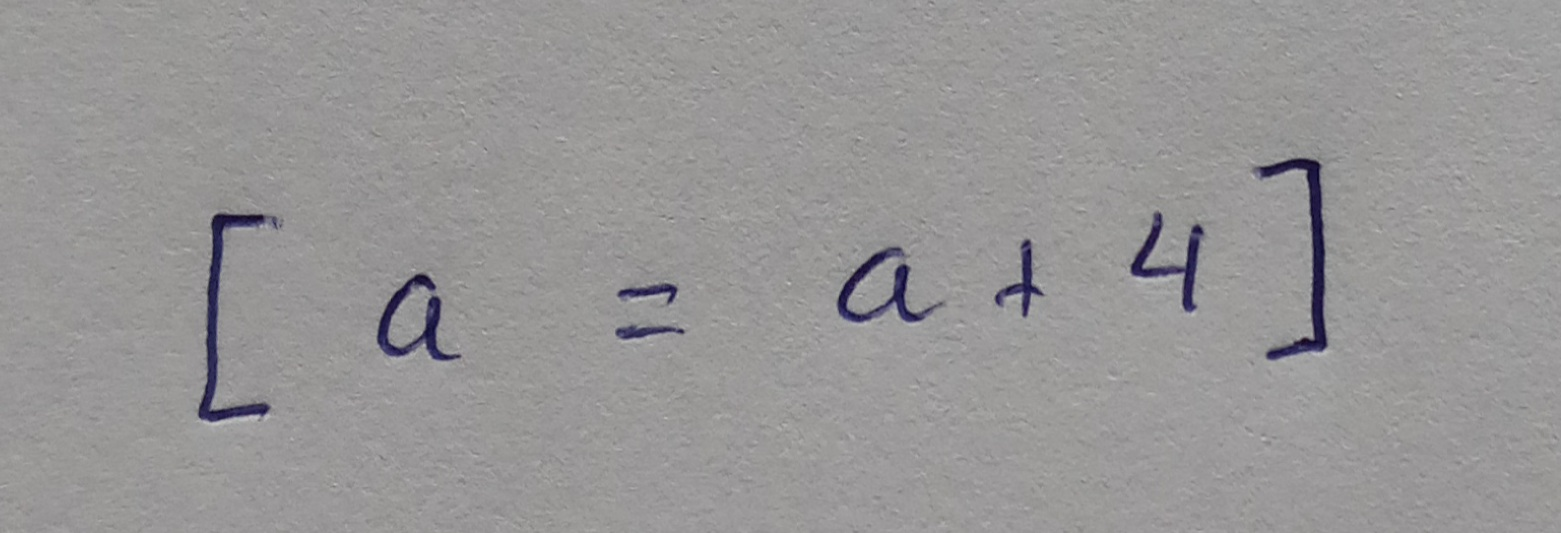 [ a = a + 4 ]